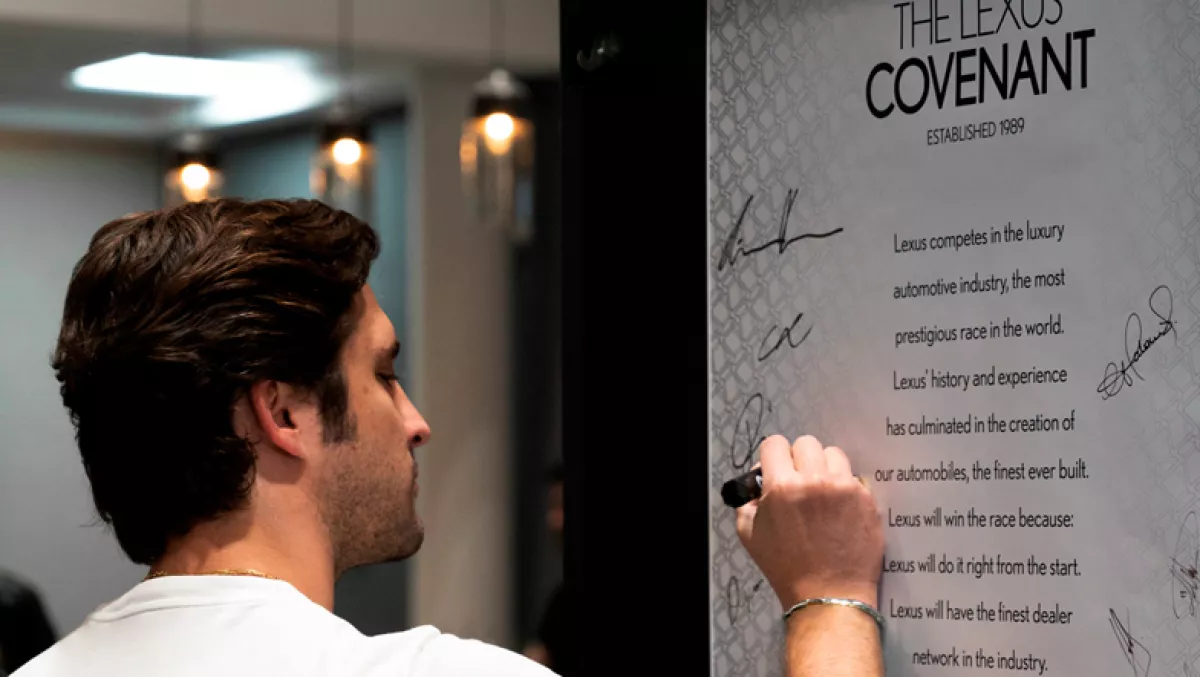 THE LEXUS
COVENANT
ESTABLISHED 1989
Lexus competes in the luxury
automotive industry, the most
prestigious race in the world.
Lexus' history and experience
has culminated in the creation of
our automobiles, the finest ever built.
Lexus will win the race because:
Lexus will do it right from the start.
Lexus will have the finest dealer
network in the industry.